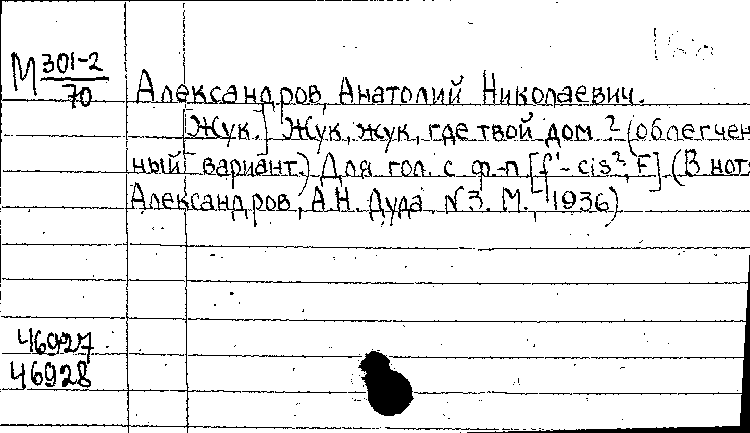 М 301-2
70
Александров, Анатолий Николаевич.
[Жук.] Жук, жук, где твой дом? (облегчен
ный вариант.) Для гол. с ф.-п [f¹- cis², F] (В нот.
Александров, А.Н. Дуда. №3. М., 1936)
46927
46928